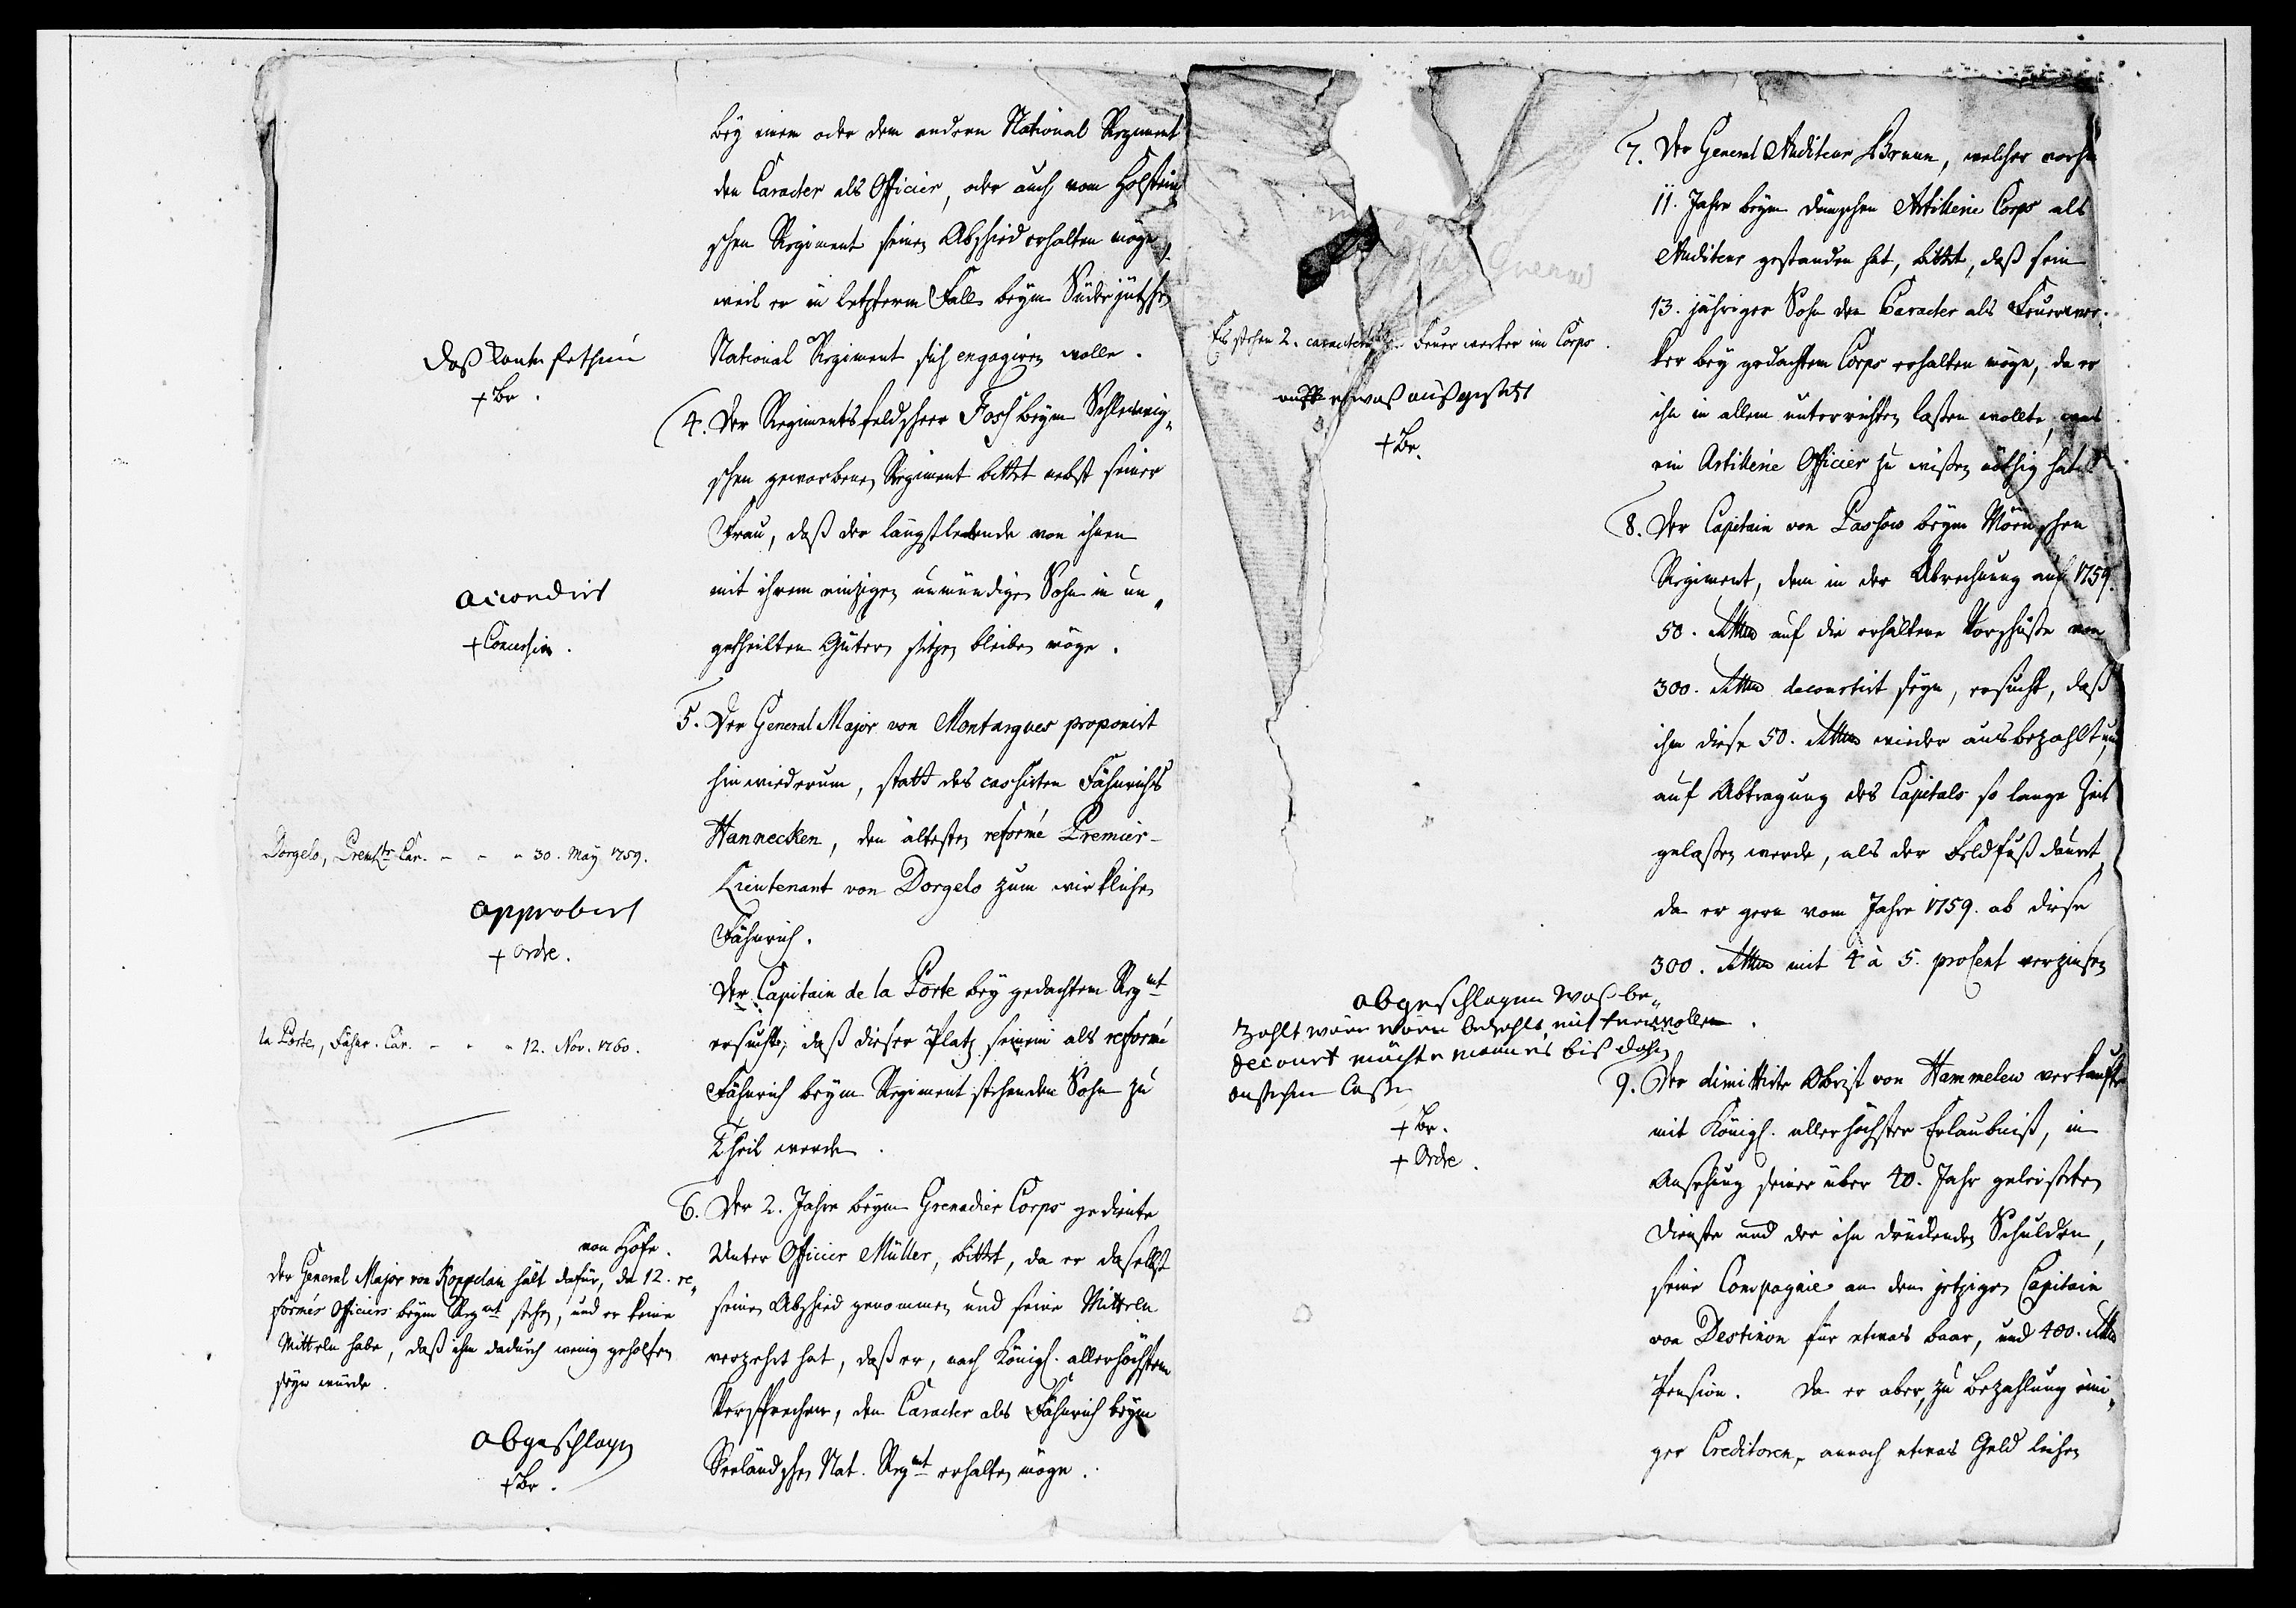 bey einem oder dem andern National Regiment
den Caracter als Officier, oder auch vom Holstein
schen Regiment seinen Abschied erhalten möge,
weil er in letzterm Fall beym Süderjütschen
National Regiment sich engagiren wolle.
Daß
+ Br.
4. Der Regimentsfeldscheer Fosch beym Schleswig„
schen geworbenen Regiment bittet nebst seiner
Frau, daß der längstlebende von ihnen
mit ihrem einzigen unmündigen Sohn in un„
getheilten Gütern sitzen bleiben möge.
accordirt
+ Concession.
5. Der General Major von Montargues proponirt
hinwiederum, statt des cassirten Fähnrichs
Hannecken, den ältesten reformé Premier-
Lieutenant von Dorgelo zum wirklichen
Fähnrich.
Dorgelo, Prem. Ltr. Car. - - - 30. May 1759.
approbirt
+ Ordre.
Der Capitain de la Porte bey gedachtem Regmt
ersucht, daß dieser Platz seinem als reformé
Fähnrich beym Regiment stehenden Sohn zu
Theil werde.
la Porte, Fähnr. Car. - - - 12. Nov. 1760.
6. Der 2. Jahre beym Grenadier Corps gediente
Unter Officier Müller, bittet, da er daselbst
seinen Abschied genommen und seine Mitteln
verzehrt hat, daß er, nach Königl. allerhöchstem
Versprechen, den Caracter als Fähnrich beym
Seeländschen Nat. Regmt erhalten möge.
von Hofe.
Der General Major von Koppelau hält dafür, da 12. re„
formés Officiers beym Regmt stehen, und er keine
Mitteln habe, daß ihm dadurch wenig geholfen
seyn würde.
abgeschlagen
+ Br.
7. Der General Auditeur Bruun, welcher vorhin
11. Jahre beym dänschen Artillerie Corps als
Auditeur gestanden hat, bittet, daß sein
13. jähriger Sohn den Caracter als Feuerwer-
ker bey gedachtem Corps erhalten möge, da er
ihn in allem unterrichten laßen wollte, was
ein Artillerie Officier zu wißen nöthig hat.
Es stehen 2. Feuerwerker im Corps.
etwaß außgesetzt
+ Br.
8. Der Capitain von Passow beym Mörnschen
Regiment, dem in der Abrechnung auf 1759.
50. Rthlr auf die erhaltene Vorschüße von
300. Rthlr decourtirt seyn, ersucht, daß
ihm diese 50. Rthlr wieder ausbezahlt, und
auf Abtragung des Capitals so lange Zeit
gelaßen werde, als der Feldfuß dauert,
da er gern vom Jahre 1759. ab diese
300. Rthlr mit 4 à 5. proCent verzinsen
wollen.
abgeschlagen waß be„
zahlt wäre wäre bezahlt, mit
decourt möchte man es biß dahin
anstehen laßen
+ Br.
+ Ordre.
9. Der dimittirte Obrist von Hammeleu verkaufte
mit Königl. allerhöchster Erlaubniß, in
Ansehung seiner über 40. Jahr geleisteten
Dienste und der ihn drückenden Schulden,
seine Compagnie an den jetzigen Capitain
von Destinon für etwas baar, und 400. Rthlr
Pension. Da er aber, zu Bezahlung eini„
ger Creditoren, annoch etwas Geld leihen